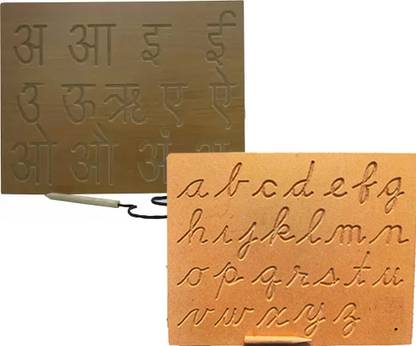 अ आ इ ई
उ ऊ ऋ ए ऐ
ओ औ अं
a b c d e f g
h i j k l m n
o p q r s t u
v w x y z